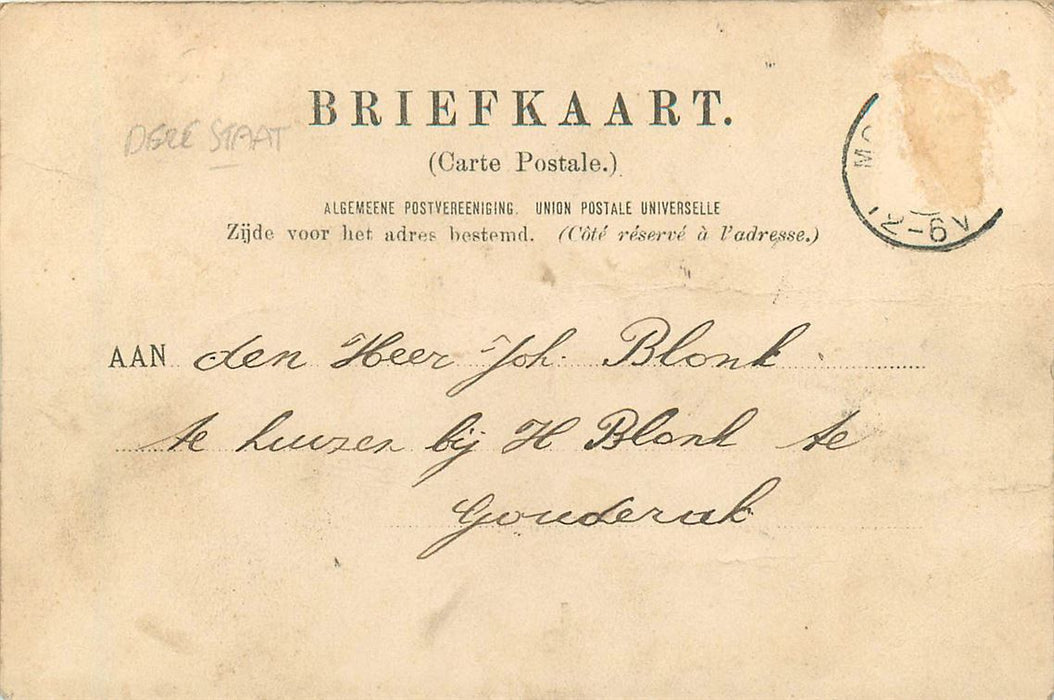 BRIEFKAART.
DEZE STAAT
(Carte Postale.)
ALGEMEENE POSTVEREENIGING. UNION POSTALE UNIVERSELLE
Zijde voor het adres bestemd. (Côté réservé à l'adresse.)
12-6V
AAN den Heer Joh. Blonk
te huizen bij H Blonk te
Gouderak